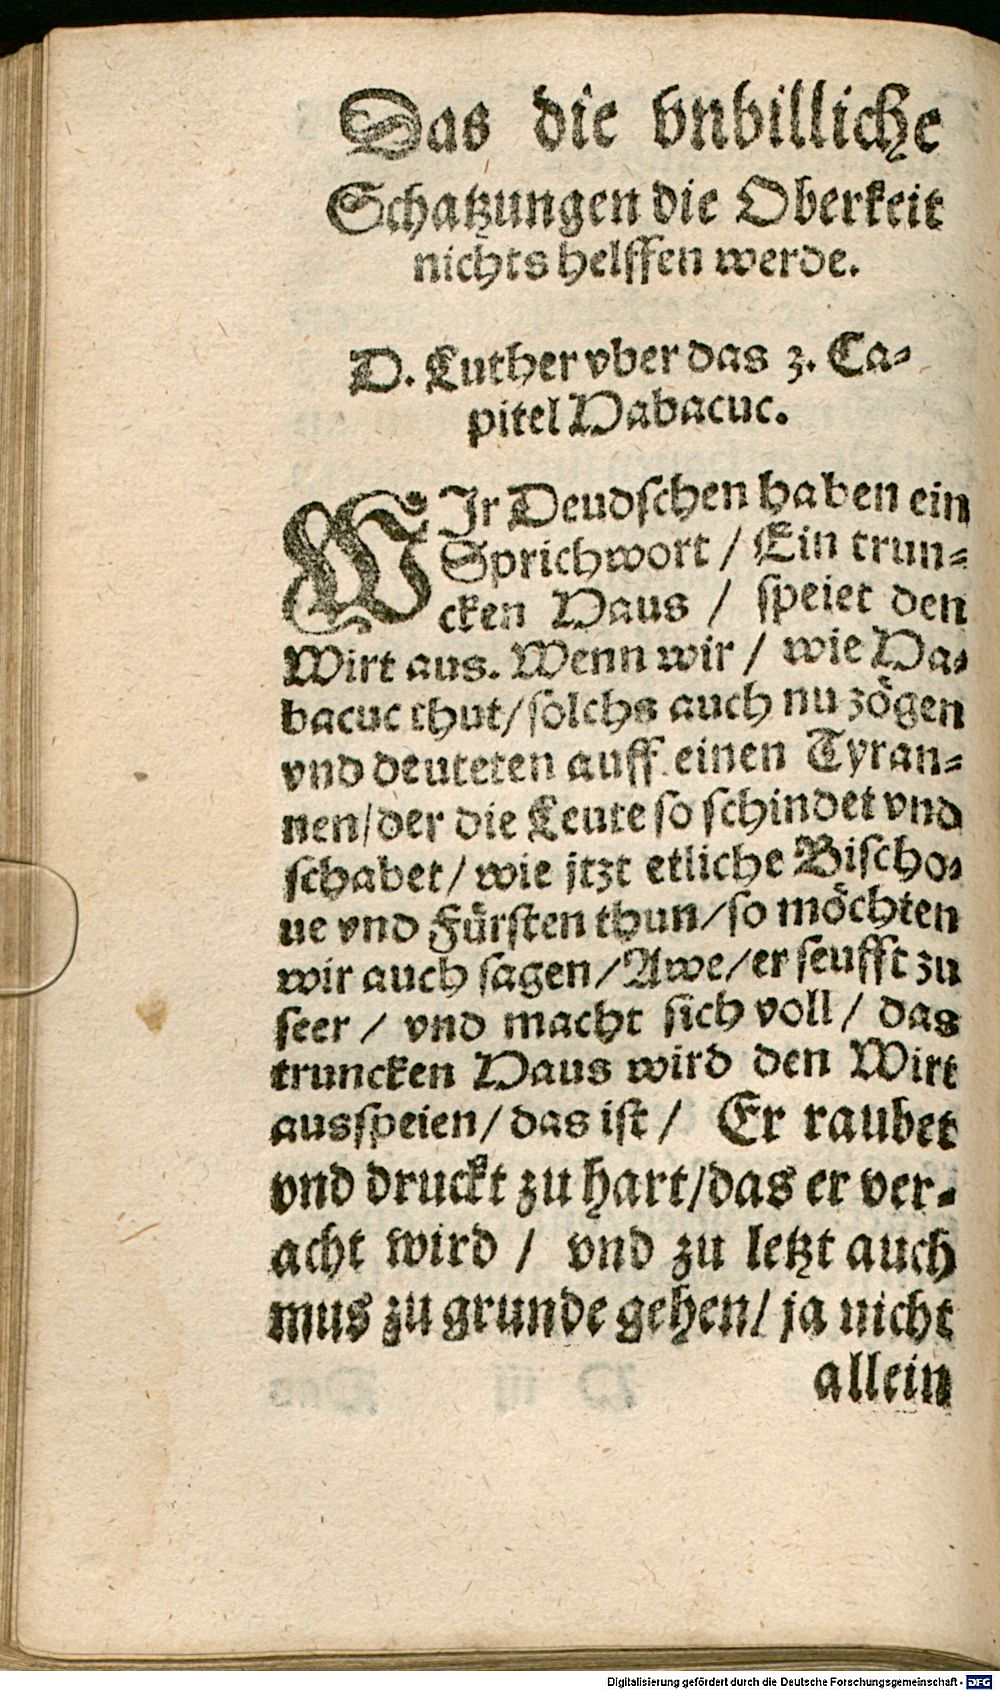 Das die vnbilliche
Schatzungen die Oberkeit
nichts helffen werde.
D. Luther vber das 3. Ca-
pitel Habacuc.
WIr Deudschen haben ein
Sprichwort / Ein trun-
cken Haus / speiet den
Wirt aus. Wenn wir / wie Ha-
bacuc thut / solchs auch nu zögen
vnd deuteten auff einen Tyran-
nen / der die Leute so schindet vnd
schabet / wie itzt etliche Bischo-
ue vnd Fürsten thun / so möchten
wir auch sagen / Awe / er seufft zu
seer / vnd macht sich voll / das
truncken Haus wird den Wirt
ausspeien / das ist / Er raubet
vnd druckt zu hart / das er ver-
acht wird / vnd zu letzt auch
mus zu grunde gehen / ja nicht
allein
Digitalisierung gefördert durch die Deutsche Forschungsgemeinschaft - DFG